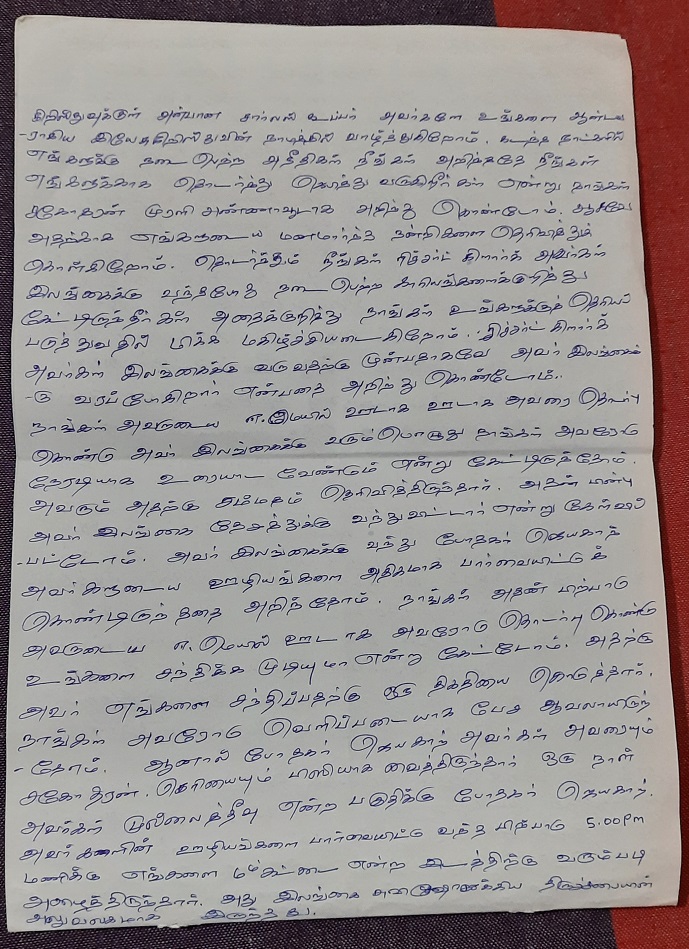 கிறிஸ்துவுக்குள் அன்பான சார்லஸ் கூப்பர் அவர்களே உங்களை ஆண்டவ
-ராகிய இயேசுகிறிஸ்துவின் நாமத்தில் வாழ்த்துகிறோம். கடந்த நாட்களில்
எங்களுக்கு நடைபெற்ற அநீதிகள் நீங்கள் அறிந்ததே நீங்கள்
எங்களுக்காக தொடர்ந்து ஜெபித்து வருகிறீர்கள் என்று நாங்கள்
சகோதரன் முரளி அண்ணாவூடாக அறிந்து கொண்டோம். ஆகவே
அதற்காக எங்களுடைய மனமார்ந்த நன்றிகளை தெரிவித்தும்
கொள்கிறோம். தொடர்ந்தும் நீங்கள் ரிச்சர்ட் கிளார்க் அவர்கள்
இலங்கைக்கு வந்தபோது நடைபெற்ற காரியங்களைக்குறித்து
கேட்டிருந்தீர்கள் அதைக்குறித்து நாங்கள் உங்களுக்குத் தெரியப்
படுத்துவதில் மிக்க மகிழ்ச்சியடைகிறோம். ரிச்சர்ட் கிளார்க்
அவர்கள் இலங்கைக்கு வருவதற்கு முன்பதாகவே அவர் இலங்கைக்
-கு வரப்போகிறார் என்பதை அறிந்து கொண்டோம்.
நாங்கள் அவருடைய ஈ.மெயில் ஊடாக ஊடாக அவரை தொடர்பு
கொண்டு அவர் இலங்கைக்கு வரும்பொழுது நாங்கள் அவரோடு
நேரடியாக உரையாட வேண்டும் என்று கேட்டிருந்தோம்.
அவரும் அதற்கு சம்மதம் தெரிவித்திருந்தார். அதன் பின்பு
அவர் இலங்கை தேசத்துக்கு வந்துவிட்டார் என்று கேள்விப்
-பட்டோம். அவர் இலங்கைக்கு வந்து போதகர் ஜெயகாந்
அவர்களுடைய ஊழியங்களை அதிகமாக பார்வையிட்டுக்
கொண்டிருந்ததை அறிந்தோம். நாங்கள் அதன் பிற்பாடு
அவருடைய ஈ.மெயில் ஊடாக அவரோடு தொடர்பு கொண்டு
உங்களை சந்திக்க முடியுமா என்று கேட்டோம். அதற்கு
அவர் எங்களை சந்திப்பதற்கு ஒரு திகதியை கொடுத்தார்.
நாங்கள் அவரோடு வெளிப்படையாக பேச ஆவலாயிருந்
-தோம். ஆனால் போதகர் ஜெயகாந் அவர்கள் அவரையும்
சகோதரன். கெரியையும் பிஸியாக வைத்திருந்தார் ஒரு நாள்
அவர்கள் முல்லைத்தீவு என்ற பகுதிக்கு போதகர் ஜெயகாந்.
அவர்களின் ஊழியங்களை பார்வையிட்டு வந்த பிற்பாடு 5.00Pm
மணிக்கு எங்களை என்ற இடத்திற்கு வரும்படி
அழைத்திருந்தார். அது இலங்கை திருச்சபையின்
அலுவலகமாக இருந்தது.